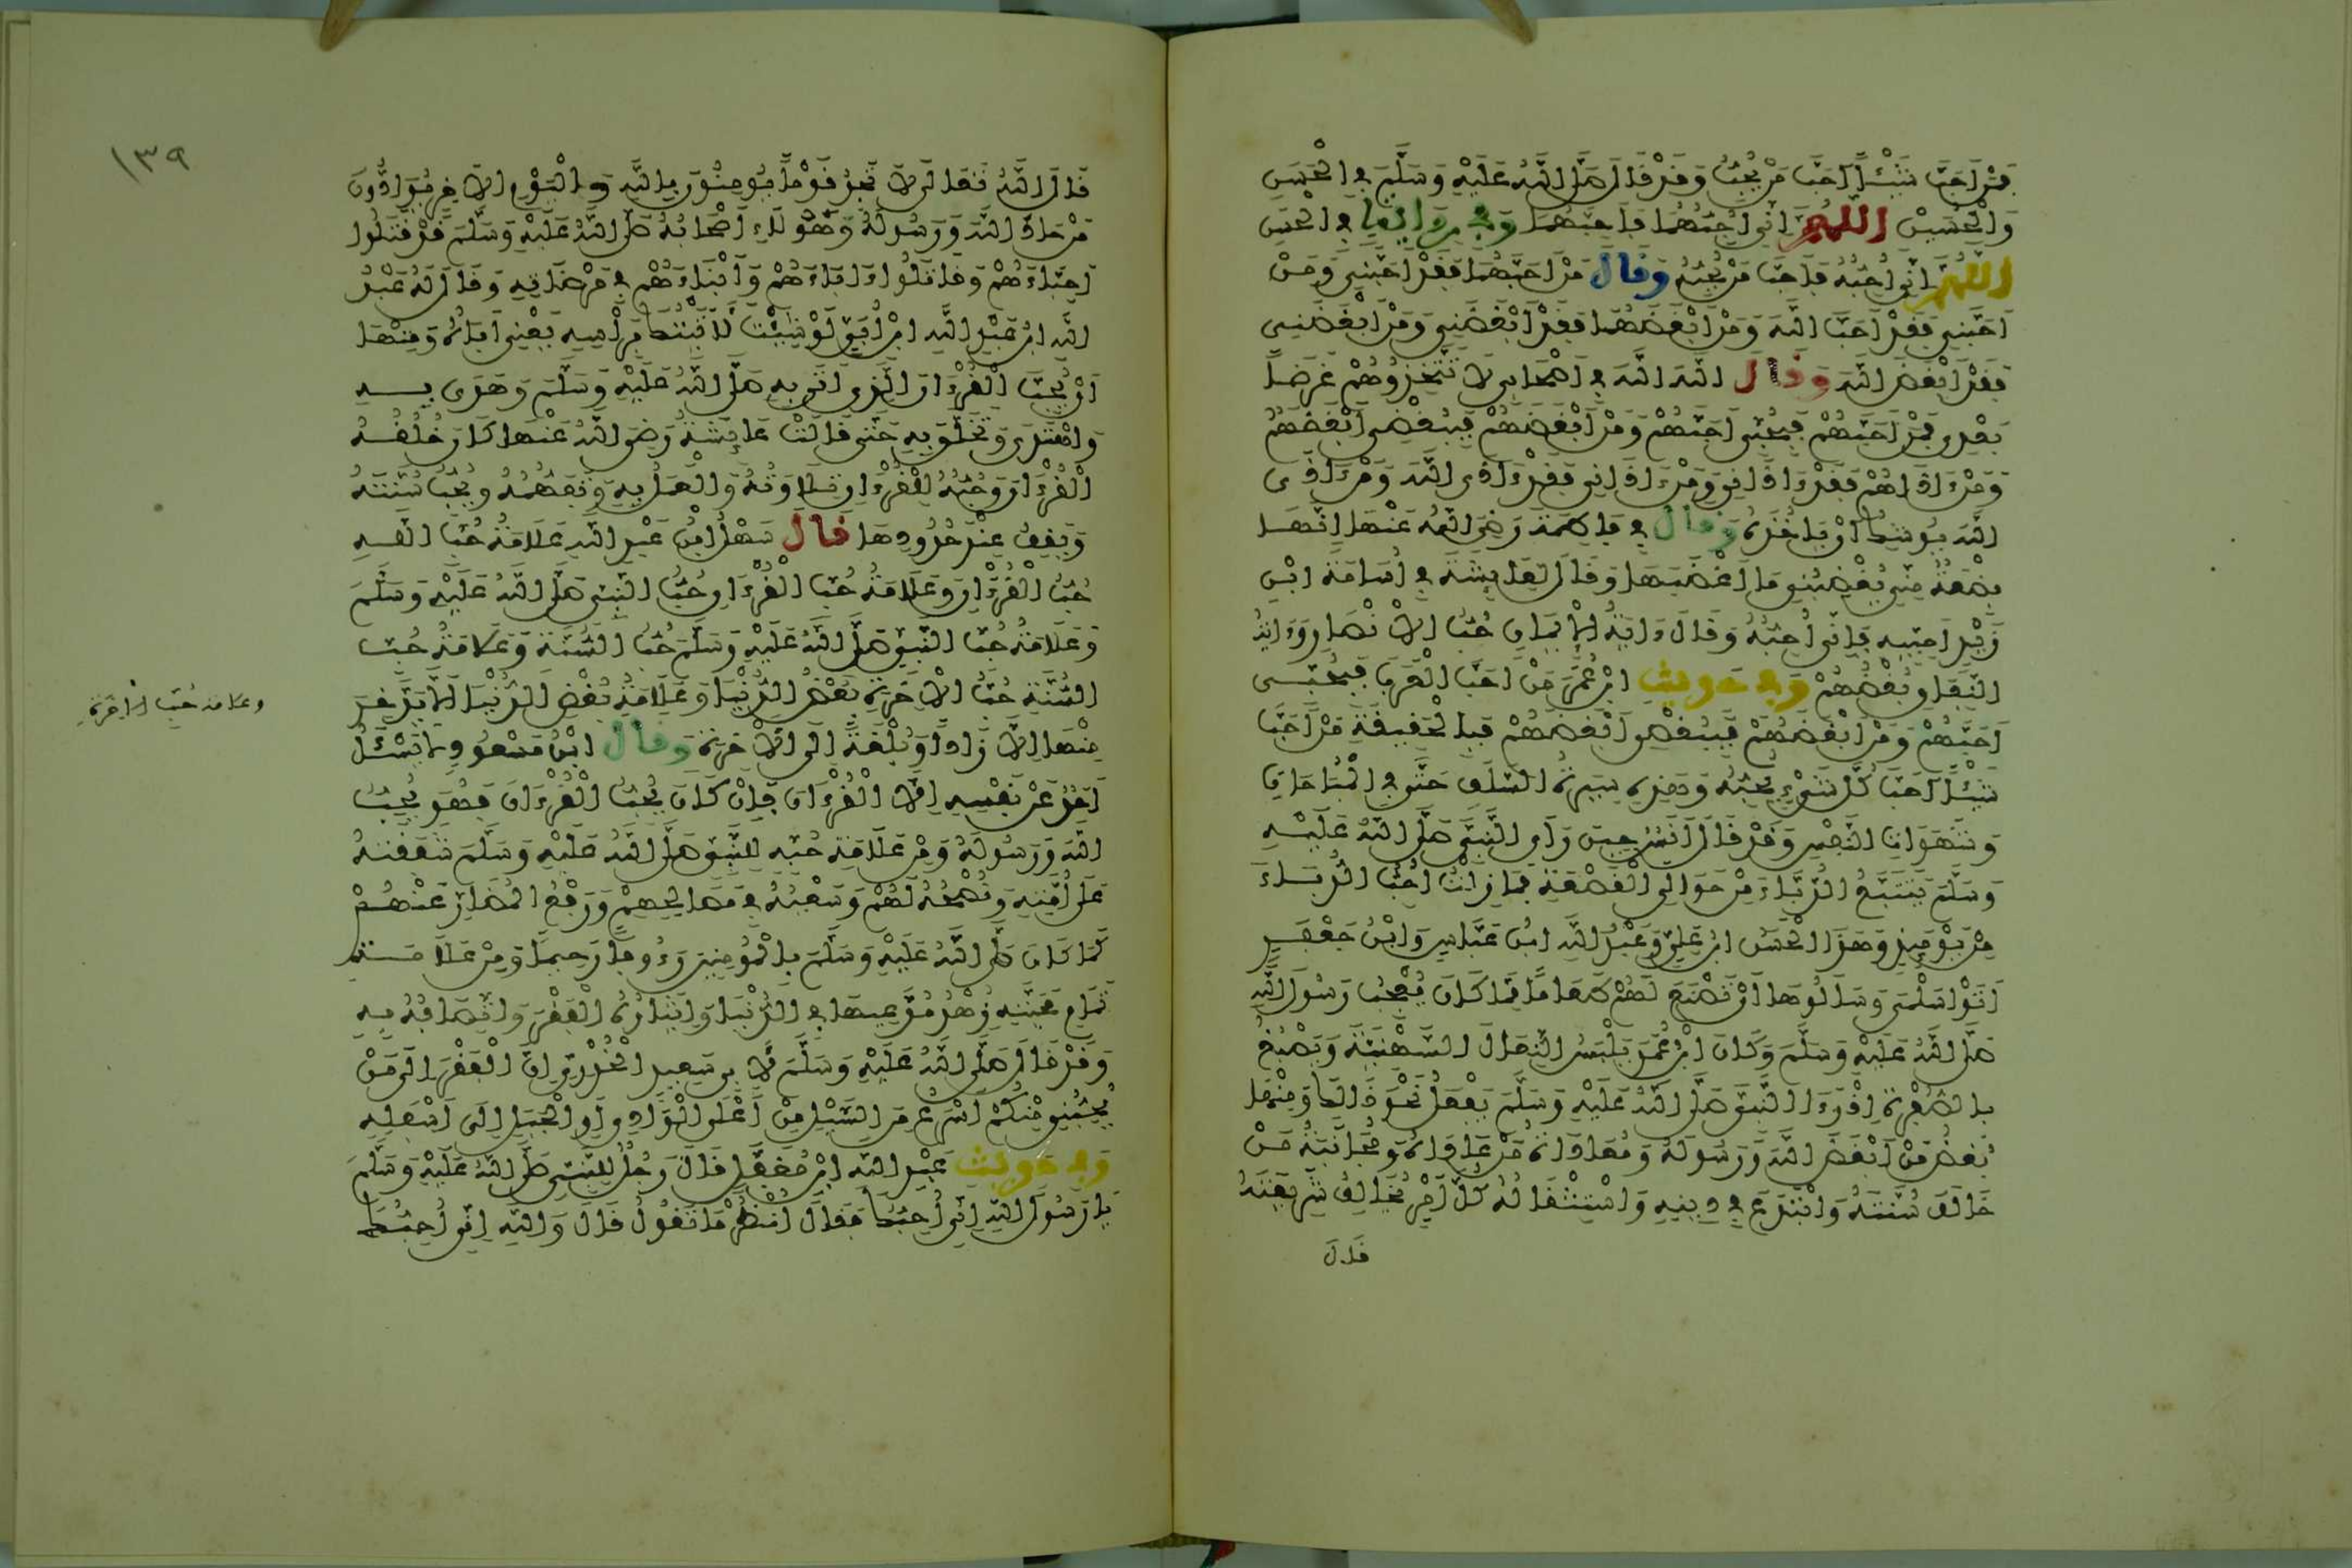 فمن احب شيئا احب من يحب وقد قال صلى الله عليه وسلم في الحسن
والحسين اللهم اني احبهما فاحبهما وفي رواية في الحسن
اللهم اني احبه فاحب من يحبه وقال من احبهما فقد احبني ومن
احبني فقد احب الله ومن ابغضهما فقد ابغضني ومن ابغضني
فقد ابغض الله وقال الله الله في اصحابي لا تتخذوهم غرضا
بعدي فمن احبهم فبحبي احبهم ومن ابغضهم فببغضي ابغضهم
ومن ءاذاهم فقد ءاذاني ومن ءاذاني فقد ءاذى الله ومن ءاذى
الله يوشك ان ياخذه وقال في فاطمة رضي الله عنها انها
بضعة مني يغضبني ما اغضبها وقال لعايشة في اسامة ابن
زيد احبيه فاني احبه وقال ءاية الايمان حب الانصار وءاية
النفاق بغضهم وفي حديث ابن عمر من احب العرب فبحبي
احبهم ومن ابغضهم فببغضي ابغضهم فبالحقيقة من احب
شيئا احب كل شيء يحبه وهذه سيرة السلف حتى في المباحات
وشهوات النفس وقد قال انس حين رأى النبي صلى الله عليه
وسلم يتتبع الدباء من حوالي القصعة فما زلت احب الدباء
من يومئذ وهذا الحسن ابن علي وعبد الله ابن عباس وابن جعفر
اتوا سلمى وسالوها ان تصنع لهم طعاما مما كان يعجب رسول الله
صلى الله عليه وسلم وكان ابن عمر يلبس النعال السبتية ويصبغ
بالصفرة اذ رءا النبي صلى الله عليه وسلم يفعل نحو ذلك ومنها
بغض من ابغض الله ورسوله ومعاداة من عاداه ومجانبة من
خالف سنته وابتدع في دينه واستثقاله كل امر يخالف شريعته
قال
١٣٩
قال الله تعالى لا تجد قوما يومنون بالله واليوم الاخر يوادون
من حاد الله ورسوله وهؤلاء اصحابه صلى الله عليه وسلم قد قتلوا
احباءهم وقاتلوا ءاباءهم وابناءهم في مرضاته وقال له عبد
الله ابن عبد الله ابن ابي لو شيت لاتيتك براسه يعني اباه ومنها
ان يحب القرءان الذي اتى به صلى الله عليه وسلم وهدى به
واهتدى وتخلق به حتى قالت عايشة رضي الله عنها كان خلقه
القرءان وحبه للقرءان تلاوته والعمل به وتفهمه ويحب سنته
ويقف عند حدودها قال سهل ابن عبد الله علامة حب الله
حب القرءان وعلامة حب القرءان حب النبي صلى الله عليه وسلم
وعلامة حب النبي صلى الله عليه وسلم حب السنة وعلامة حب
السنة حب الاخرة بغض الدنيا وعلامة بغض الدنيا الا يدخر
وعلامة حب الاخرة
منها الا زادا وبلغة الى الاخرة وقال ابن مسعود لا يسئل
احد عن نفسه الا القرءان فان كان يحب القرءان فهو يحب
الله ورسوله ومن علامة حبه للنبي صلى الله عليه وسلم شفقته
على امته ونصحه لهم وسعيه في مصالحهم ورفع المضار عنهم
كما كان صلى الله عليه وسلم بالمومنين رءوفا رحيما ومن علامة
تمام محبته زهد مدعيها في الدنيا وايثاره الفقر واتصافه به
وقد قال صلى الله عليه وسلم لابي سعيد الخدري ان الفقر الى من
يحبني منكم اسرع من السيل من اعلى الوادي او الجبل الى اسفله
وفي حديث عبد الله ابن مغفل قال رجل للنبي صلى الله عليه وسلم
يا رسول الله اني احبك فقال انظر ما تقول قال والله اني احبك